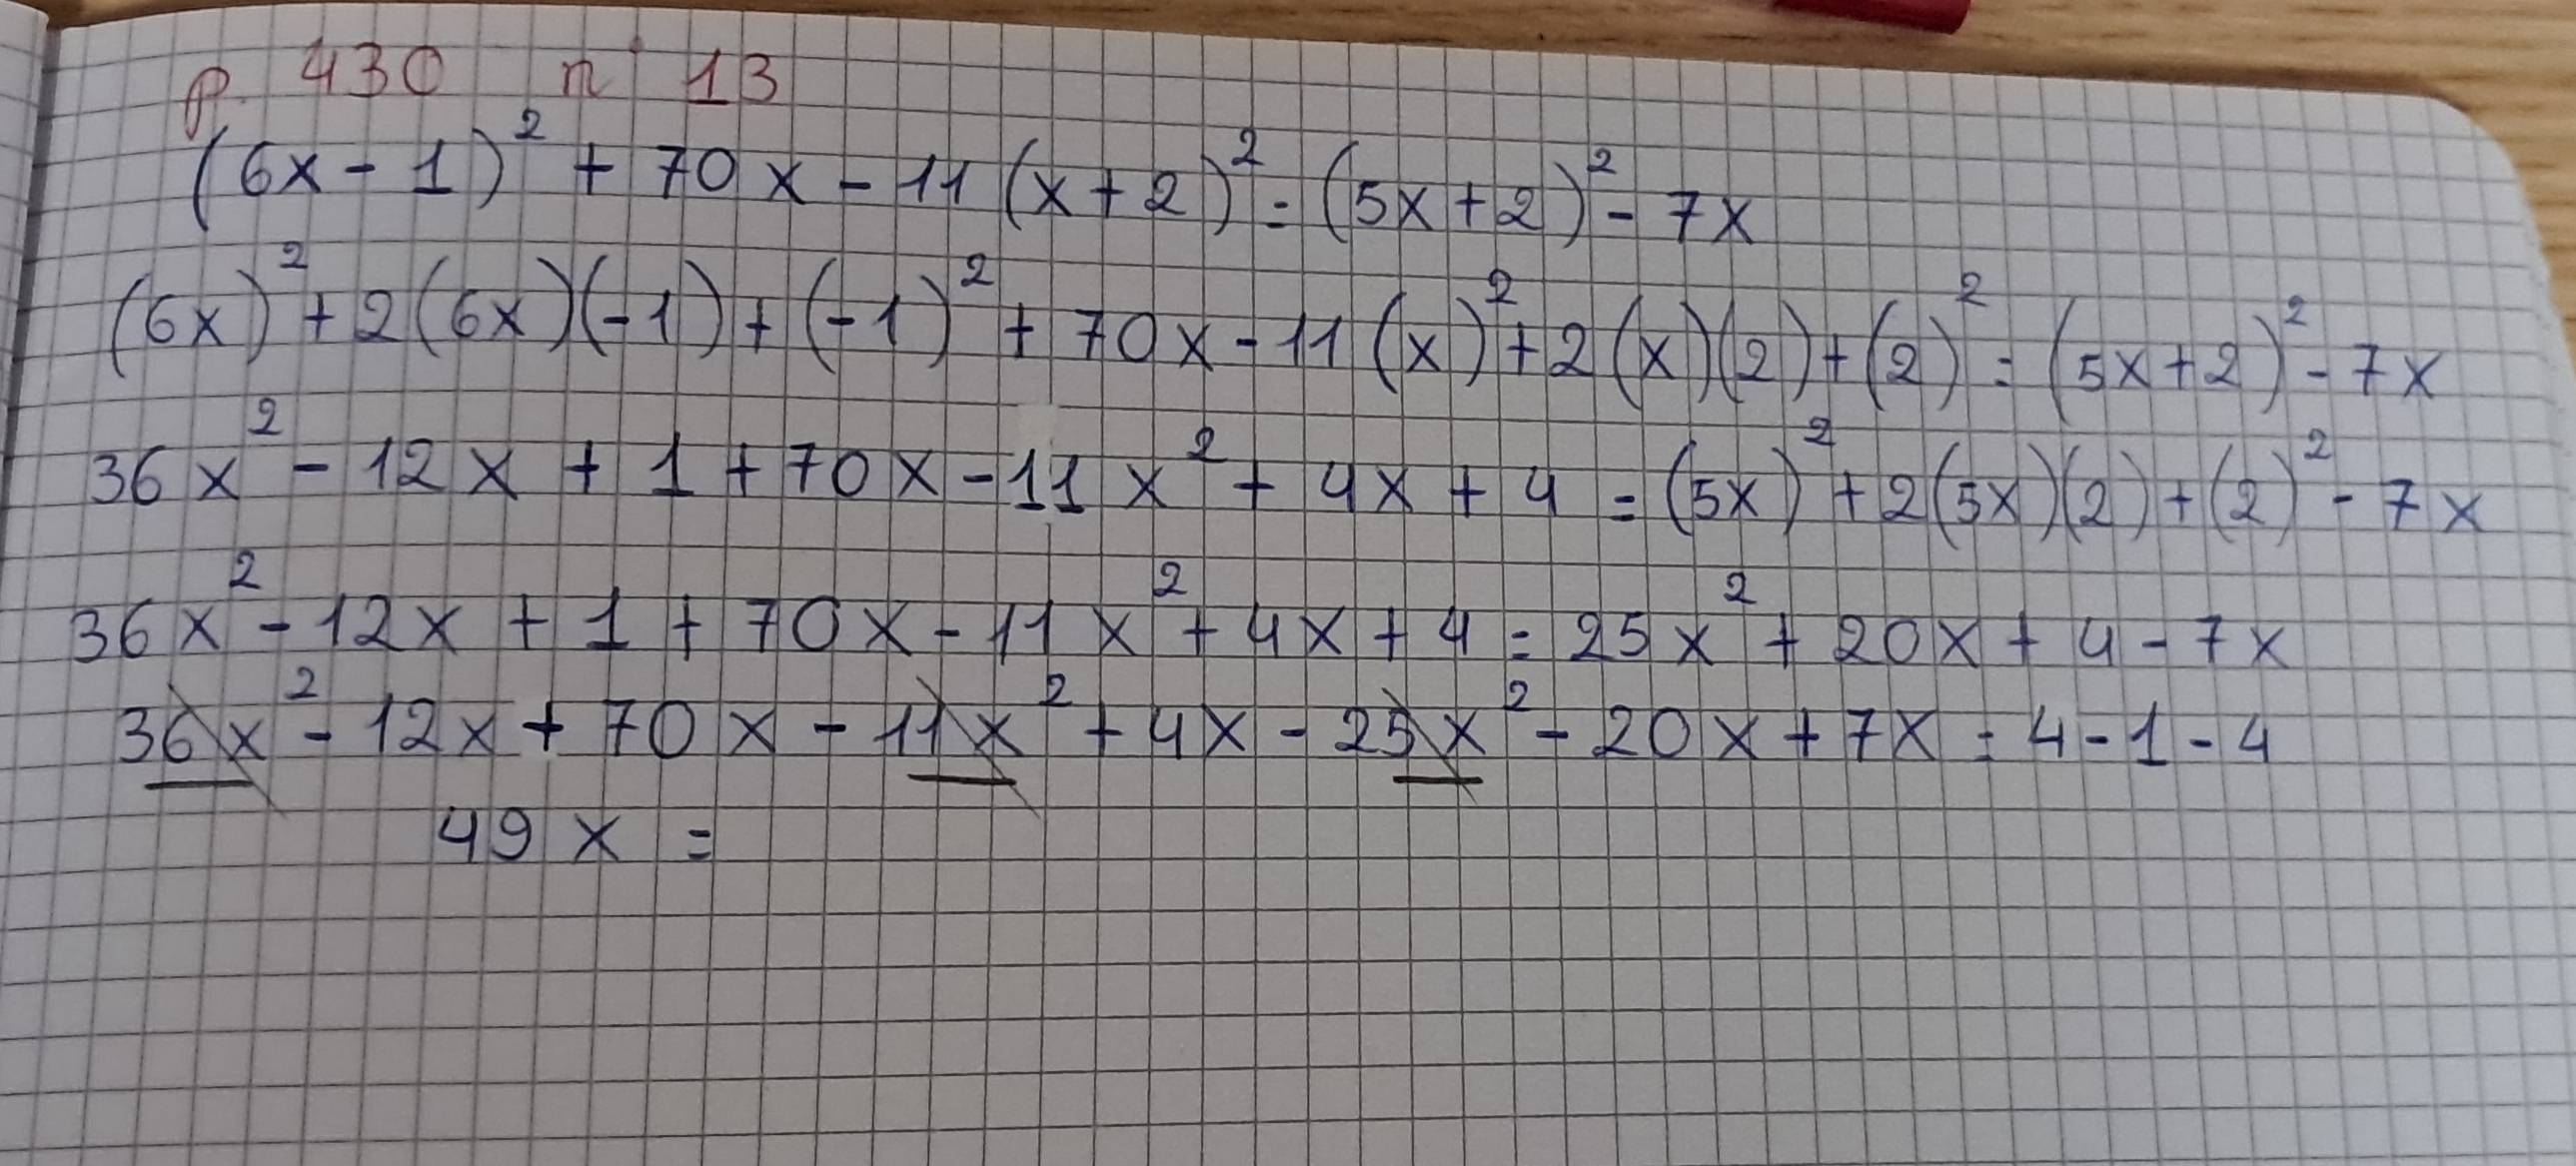 p. 430 n° 13
(6x - 1)² + 70x - 11(x + 2)² = (5x + 2)² - 7x
(6x)² + 2(6x)(-1) + (-1)² + 70x - 11(x)² + 2(x)(2) + (2)² = (5x + 2)² - 7x
36x² - 12x + 1 + 70x - 11x² + 4x + 4 = (5x)² + 2(5x)(2) + (2)² - 7x
36x² - 12x + 1 + 70x - 11x² + 4x + 4 = 25x² + 20x + 4 - 7x
36x² - 12x + 70x - 11x² + 4x - 25x² - 20x + 7x = 4 - 1 - 4
49x =